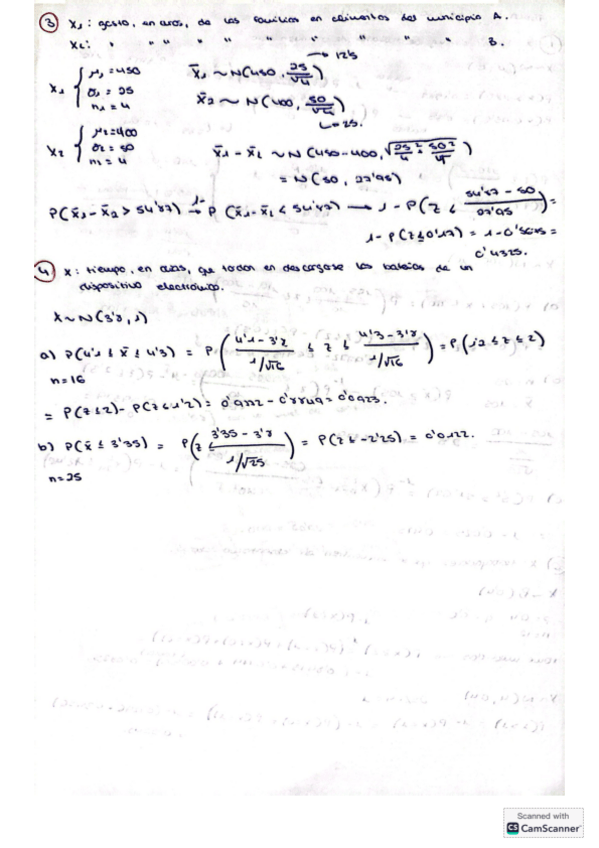 ③ X₁: gasto, en euros, de las familias en alimentos del municipio A.
X₂: " " " " " " " " " B.
X₁ { μ₁ = 450
σ₁ = 25
n₁ = 4
→ 12'5
X̄₁ ~ N(450, 25/√4)
X̄₂ ~ N(400, 50/√4)
↳ 25.
X₂ { μ₂ = 400
σ₂ = 50
n₂ = 4
X̄₁ - X̄₂ ~ N(450-400, √(25²/4 + 50²/4))
= N(50, 27'95)
P(X̄₁ - X̄₂ > 54'87) →¹⁻ P(X̄₁ - X̄₂ < 54'87) → 1 - P(Z < (54'87 - 50)/27'95) =
1 - P(Z ≤ 0'17) = 1 - 0'5675 =
0'4325.
④ X: tiempo, en que tardan en descargarse las baterías de un
dispositivo electrónico.
X ~ N(3'8, 1)
a) P(4'1 ≤ X̄ ≤ 4'3) = P((4'1 - 3'8)/(1/√16) ≤ Z ≤ (4'3 - 3'8)/(1/√16)) = P(1'2 ≤ Z ≤ 2)
n = 16
= P(Z ≤ 2) - P(Z ≤ 1'2) = 0'9772 - 0'8849 = 0'0923.
b) P(X̄ ≤ 3'35) = P(Z ≤ (3'35 - 3'8)/(1/√25)) = P(Z ≤ -2'25) = 0'0122.
n = 25
Scanned with
CS CamScanner